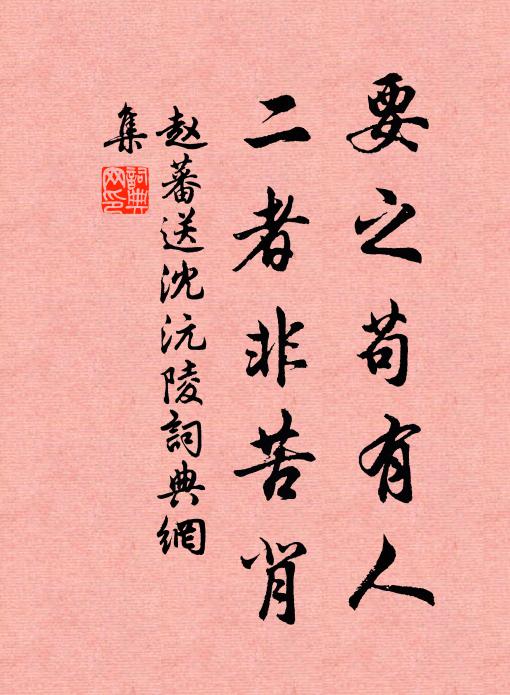 要之苟有人
二者非苦背
赵蕃送沈沅陵詞典網
集
詞典网印